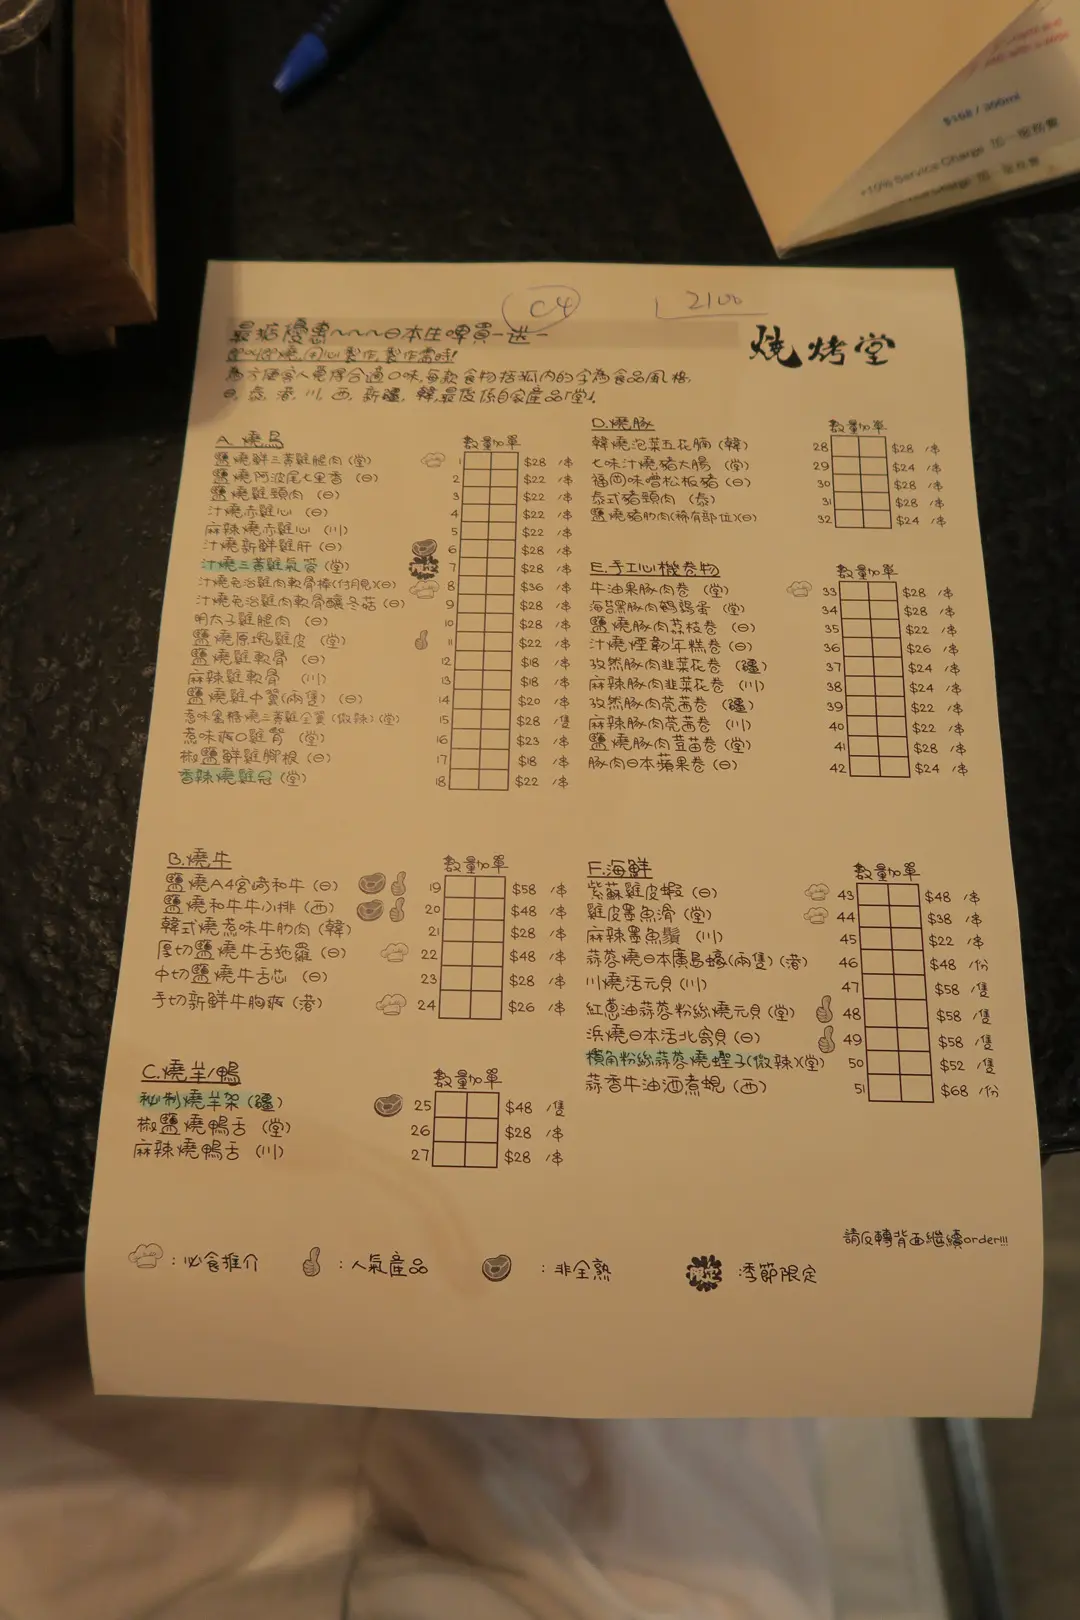 $168 / 300ml
+10% Service Charge 加一服務費
C4
2100
燒烤堂
最痴優惠~~~日本生啤買一送一
即叫即燒,用心製作,製作需時!
為方便客人覓得合適口味,每款食物括弧內的字為食品風格,
日, 泰, 港, 川, 西, 新疆, 韓,最後係自家產品「堂」.
A. 燒鳥 數量加單
鹽燒鮮三黃雞腿肉 (堂) 1 $28 /串
鹽燒阿波尾七里香 (日) 2 $22 /串
鹽燒雞頸肉 (日) 3 $22 /串
汁燒赤雞心 (日) 4 $22 /串
麻辣燒赤雞心 (川) 5 $22 /串
汁燒新鮮雞肝 (日) 6 $28 /串
汁燒三黃雞氣管 (堂) 限定 7 $28 /串
汁燒免治雞肉軟骨棒(付月見)(日) 8 $36 /串
汁燒免治雞肉軟骨釀冬菇 (日) 9 $28 /串
明太子雞腿肉 (日) 10 $28 /串
鹽燒原塊雞皮 (堂) 11 $22 /串
鹽燒雞軟骨 (日) 12 $18 /串
麻辣雞軟骨 (川) 13 $18 /串
鹽燒雞中翼(兩隻) (日) 14 $20 /串
惹味蜜糖燒三黃雞全翼 (微辣) (堂) 15 $28 /隻
惹味爽口雞腎 (堂) 16 $23 /串
椒鹽鮮雞腳根 (日) 17 $18 /串
香辣燒雞冠 (堂) 18 $22 /串
B.燒牛 數量加單
鹽燒A4宮崎和牛 (日) 19 $58 /串
鹽燒和牛牛小排 (西) 20 $48 /串
韓式燒惹味牛肋肉 (韓) 21 $28 /串
厚切鹽燒牛舌拖羅 (日) 22 $48 /串
中切鹽燒牛舌芯 (日) 23 $28 /串
手切新鮮牛胸爽 (港) 24 $26 /串
C.燒羊/鴨 數量加單
秘制燒羊架 (疆) 25 $48 /隻
椒鹽燒鴨舌 (堂) 26 $28 /串
麻辣燒鴨舌 (川) 27 $28 /串
D.燒豚 數量加單
韓燒泡菜五花腩 (韓) 28 $28 /串
七味汁燒豬大腸 (堂) 29 $24 /串
福岡味噌松板豬 (日) 30 $28 /串
泰式豬頸肉 (泰) 31 $28 /串
鹽燒豬肋肉(稀有部位)(日) 32 $24 /串
E.手工心機卷物 數量加單
牛油果豚肉卷 (堂) 33 $28 /串
海苔黑豚肉鵪鶉蛋 (堂) 34 $28 /串
鹽燒豚肉荔枝卷 (日) 35 $22 /串
汁燒煙韌年糕卷 (日) 36 $26 /串
孜然豚肉韭菜花卷 (疆) 37 $24 /串
麻辣豚肉韭菜花卷 (川) 38 $24 /串
孜然豚肉芫茜卷 (疆) 39 $22 /串
麻辣豚肉芫茜卷 (川) 40 $22 /串
鹽燒豚肉荳苗卷 (堂) 41 $28 /串
豚肉日本蘋果卷 (日) 42 $24 /串
F.海鮮 數量加單
紫蘇雞皮蝦 (日) 43 $48 /串
雞皮墨魚滑 (堂) 44 $38 /串
麻辣墨魚鬚 (川) 45 $22 /串
蒜蓉燒日本廣島蠔(兩隻) (港) 46 $48 /份
川燒活元貝 (川) 47 $58 /隻
紅蔥油蒜蓉粉絲燒元貝 (堂) 48 $58 /隻
浜燒日本活北寄貝 (日) 49 $58 /隻
檳角粉絲蒜蓉燒蟶子(微辣)(堂) 50 $52 /隻
蒜香牛油酒煮蜆 (西) 51 $68 /份
請反轉背面繼續order!!!
:必食推介 :人氣產品 :非全熟 限定 季節限定